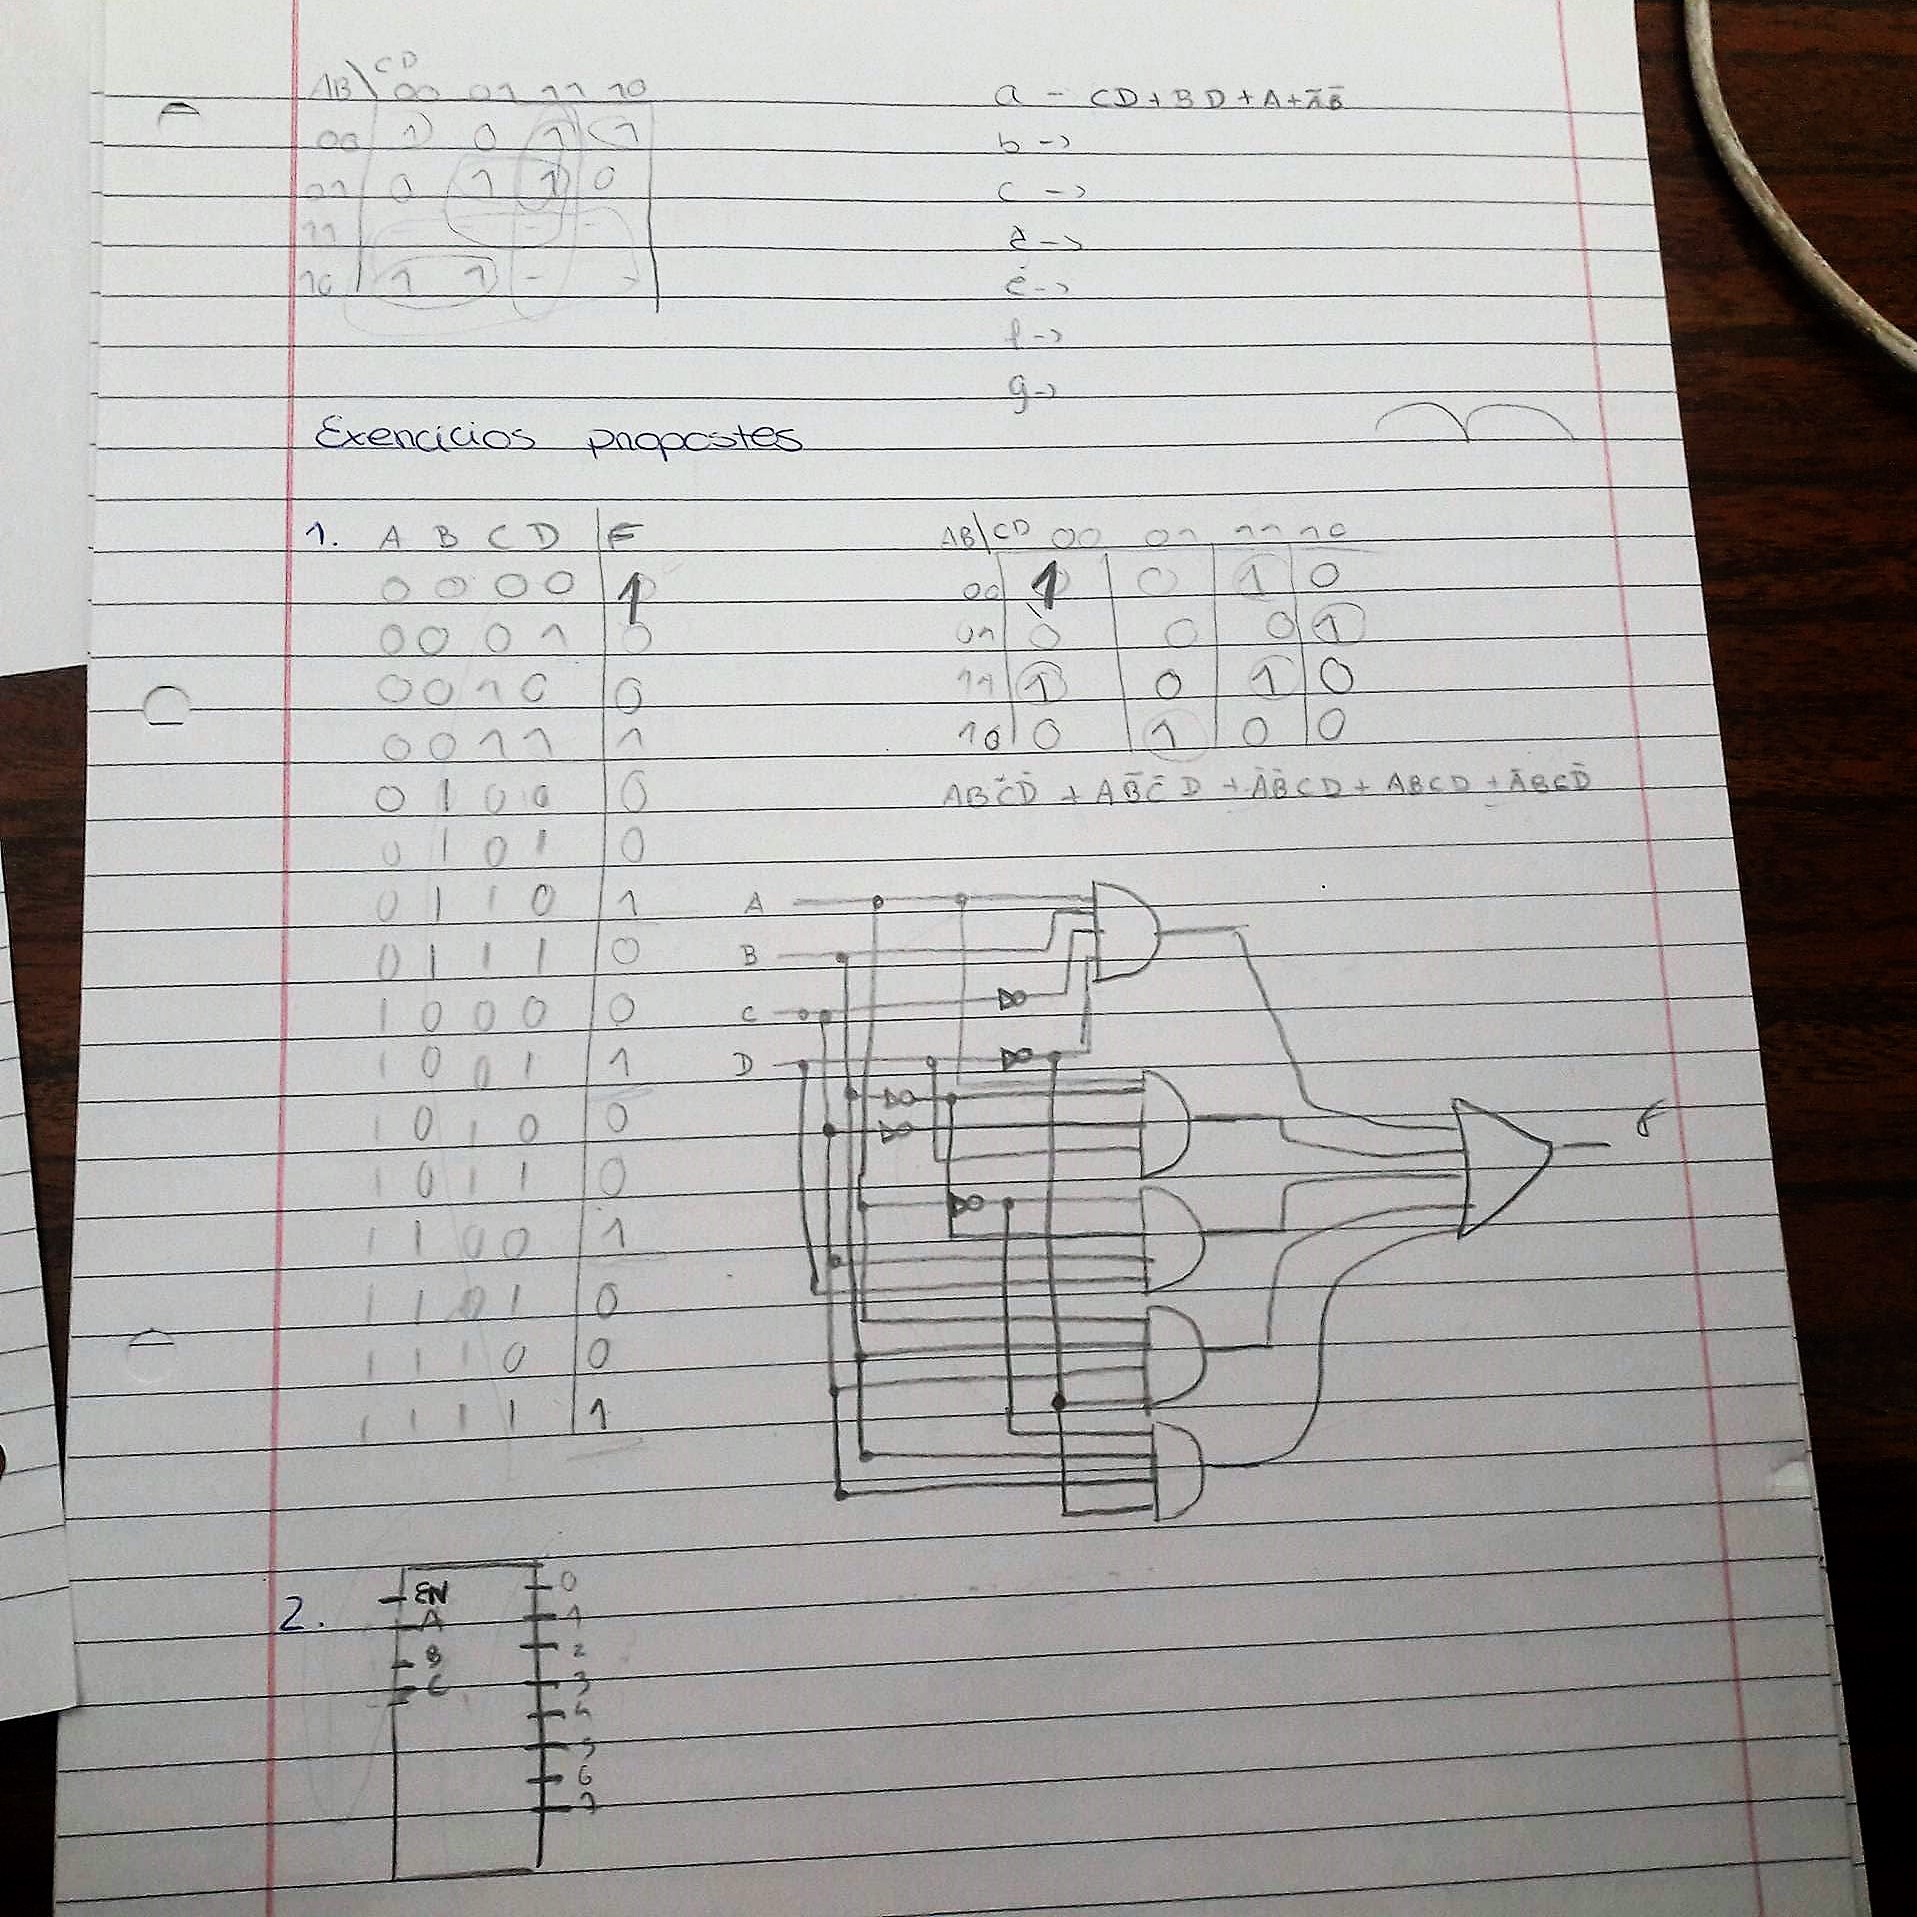 AB\CD 00 01 11 10
00 1 0 1 1
01 0 1 1 0
11 - - - -
10 1 1 - -
a - CD+BD+A+A̅B̅
b ->
c ->
d ->
e ->
f ->
g ->
Exercícios propostos
1. A B C D F
0 0 0 0 1
0 0 0 1 0
0 0 1 0 0
0 0 1 1 1
0 1 0 0 0
0 1 0 1 0
0 1 1 0 1
0 1 1 1 0
1 0 0 0 0
1 0 0 1 1
1 0 1 0 0
1 0 1 1 0
1 1 0 0 1
1 1 0 1 0
1 1 1 0 0
1 1 1 1 1
AB\CD 00 01 11 10
00 1 0 1 0
01 0 0 0 1
11 1 0 1 0
10 0 1 0 0
ABC̅D̅ + AB̅C̅D + A̅B̅CD + ABCD + A̅BCD̅
A
B
C
D
F
2.
EN 0
A 1
B 2
C 3
4
5
6
7